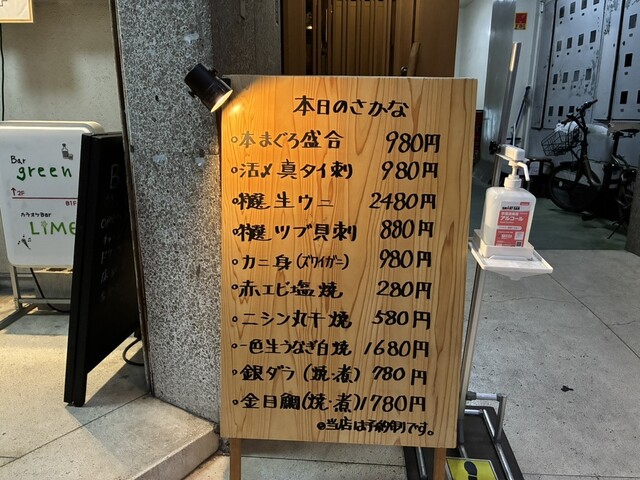 本日のさかな
本まぐろ盛合 980円
活〆真タイ刺 980円
特選生ウニ 2480円
特選ツブ貝刺 880円
カニ身(ズワイガニ) 980円
赤エビ塩焼 280円
ニシン丸干焼 580円
一色生うなぎ白焼 1680円
銀ダラ(焼・煮) 780円
金目鯛(焼・煮) 1780円
◎当店は予約制です。
Bar
green
2F
B1F
カラオケBar
LiME
アルコール